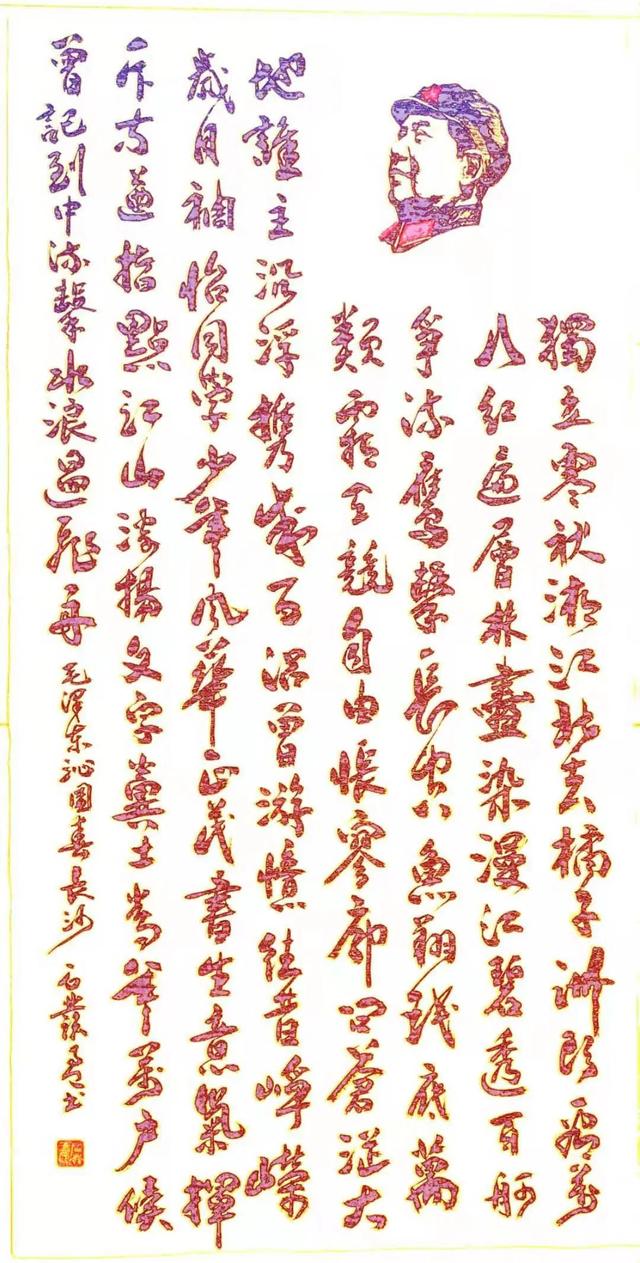 獨立寒秋湘江北去橘子洲頭看萬
山红遍層林盡染漫江碧透百舸
爭流鷹擊長空魚翔淺底萬
類霜天競自由悵寥廓问蒼茫大
地誰主沉浮攜來百侣曾游憶往昔崢嶸
歲月稠恰同學少年风華正茂書生意氣揮
斥方遒指點江山激揚文字糞土當年萬户侯
曾記到中流擊水浪遏飛舟 毛澤東沁園春長沙